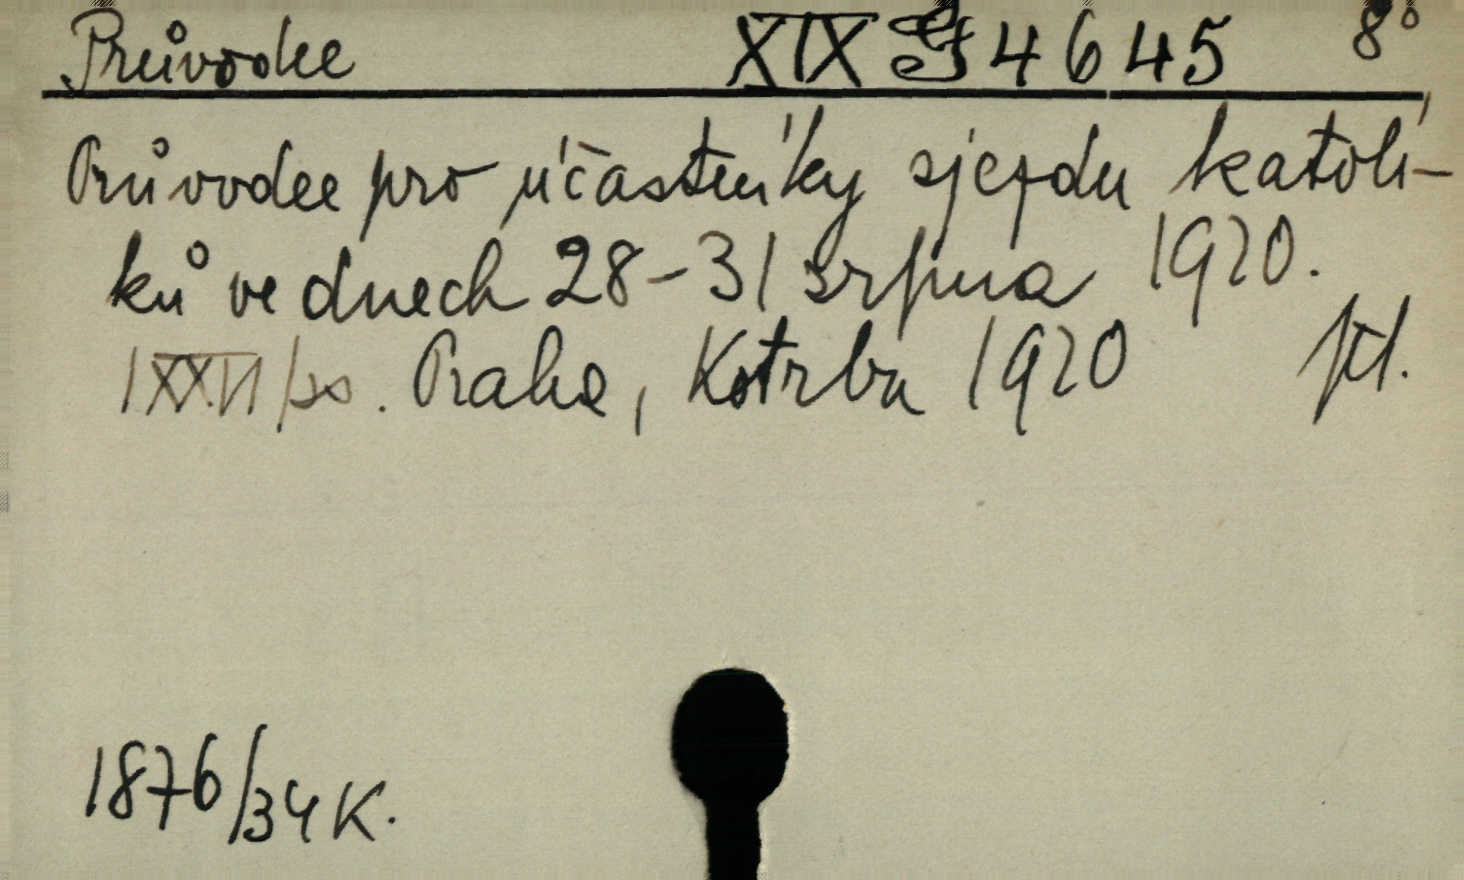 Průvodce XIX J 4645 8°
Průvodce pro účastníky sjezdu katolí-
ků ve dnech 28-31 srpna 1920.
Praha, Kotrba 1920
1876/34 K.